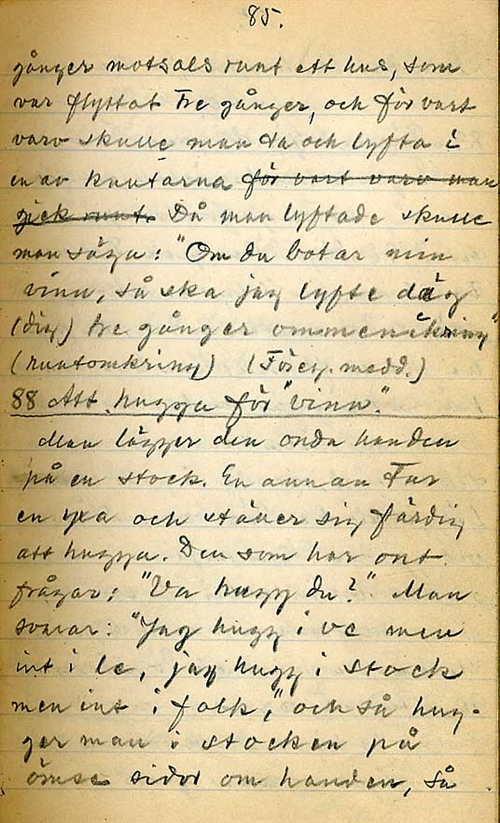 85.
gånger motsols runt ett hus, som
var flyttat tre gånger, och för vart
varv skulle man ta och lyfta i
en av knutarna för vart varv man
gick runt. Då man lyftade skulle
man säga: "Om du botar min
vinn, så ska jag lyfte däg
(dig) tre gånger ommenikring"
(runtomkring) (Föreg. medd.)
88 Att hugga för "vinn".
Man lägger den onda handen
på en stock. En annan tar
en yxa och ställer sig färdig
att hugga. Den som har ont
frågar: "Va hugg du?" Man
svarar: "Jag hugg i ve men
int i le, jag hugg i stock
men int i folk," och så hug-
ger man i stocken på
ömse sidor om handen, så